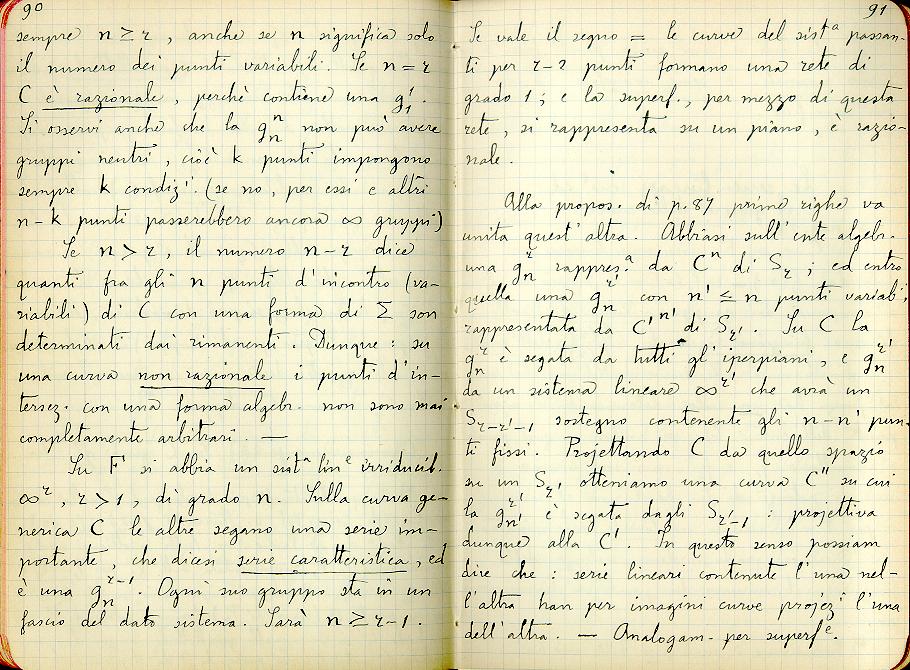 90
sempre n ≥ r, anche se n significa solo
il numero dei punti variabili. Se n = r
C è razionale, perchè contiene una g¹₁.
Si osservi anche che la gⁿₙ non può avere
gruppi neutri, cioè k punti impongono
sempre k condizⁱ. (se no, per essi e altri
n-k punti passerebbero ancora ∞ gruppi)
Se n > r, il numero n-r dice
quanti fra gli n punti d'incontro (va-
riabili) di C con una forma di Σ son
determinati dai rimanenti. Dunque: su
una curva non razionale i punti d'in-
tersez. con una forma algebr. non sono mai
completamente arbitrari. —
Su F si abbia un sistᵃ linᵉ irriducib.
∞ʳ, r > 1, di grado n. Sulla curva ge-
nerica C le altre segano una serie im-
portante, che dicesi serie caratteristica, ed
è una gʳ⁻¹ₙ. Ogni suo gruppo sta in un
fascio del dato sistema. Sarà n ≥ r-1.
91
Se vale il segno = le curve del sistᵃ passan-
ti per r-2 punti formano una rete di
grado 1; e la superf., per mezzo di questa
rete, si rappresenta su un piano, è razio-
nale.
Alla propos. di p. 87 prime righe va
unita quest'altra. Abbiasi sull'ente algebr.
una gʳₙ rappresᵃ da Cⁿ di Sᵣ; ed entro
quella una gʳ'ₙ' con n' ≤ n punti variabⁱ,
rappresentata da C'ⁿ' di Sᵣ'. Su C la
gʳₙ è segata da tutti gl'iperpiani, e gʳ'ₙ
da un sistema lineare ∞ʳ' che avrà un
Sᵣ₋ᵣ'₋₁ sostegno contenente gli n-n' pun-
ti fissi. Projettando C da quello spazio
su un Sᵣ' otteniamo una curva C'' su cui
la gʳ'ₙ' è segata dagli Sᵣ'₋₁: projettiva
dunque alla C' In questo senso possiam
dire che: serie lineari contenute l'una nel-
l'altra han per imagini curve projezⁱ l'una
dell'altra. — Analogam. per superfᵉ.